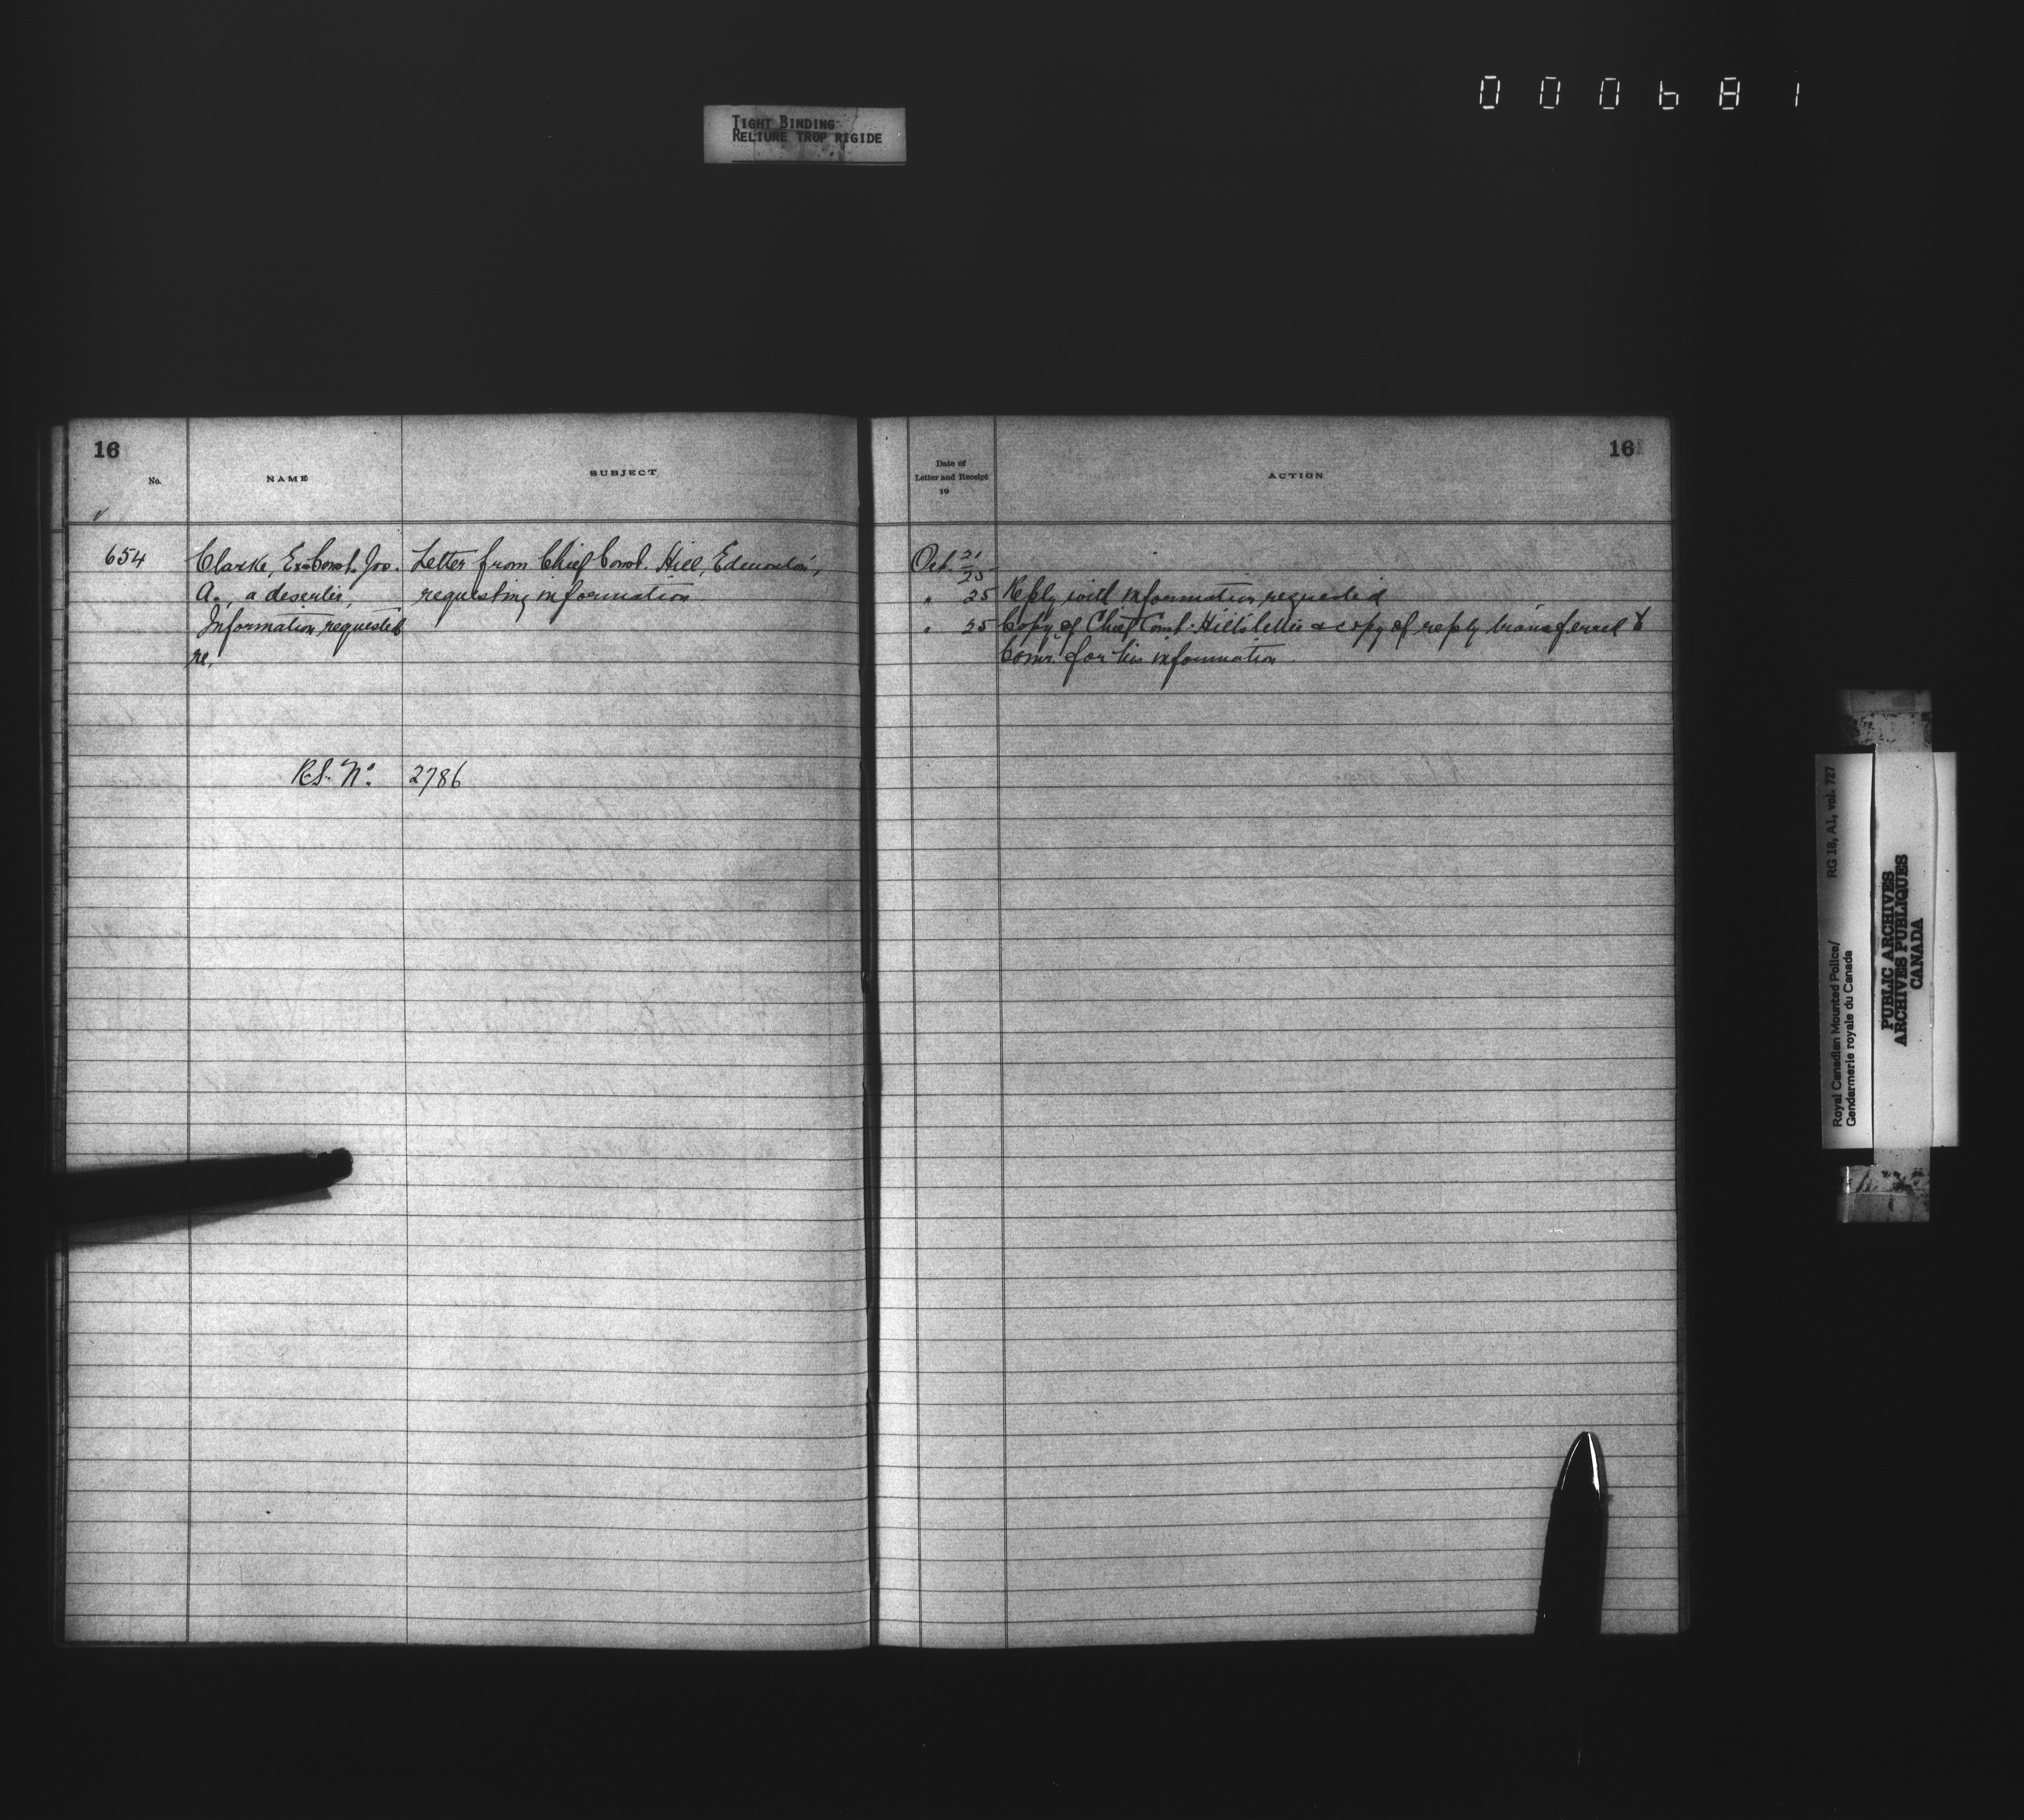 000681
TIGHT BINDING
RELIURE TROP RIGIDE
16
No.
NAME
SUBJECT
654
Clarke, Ex-Const. Jos.
A., a deserter,
Information requested
re.
Letter from Chief Const. Hill, Edmonton,
requesting information
R.S. No. 2786
16
Date of
Letter and Receipt
19
ACTION
Oct. 21/25
" 25 Reply with information requested
" 25 Copy of Chief Const. Hill's letter & copy of reply transferred to
Comr. for his information.
RG 18, A1, vol. 727
Royal Canadian Mounted Police/
Gendarmerie royale du Canada
PUBLIC ARCHIVES
ARCHIVES PUBLIQUES
CANADA